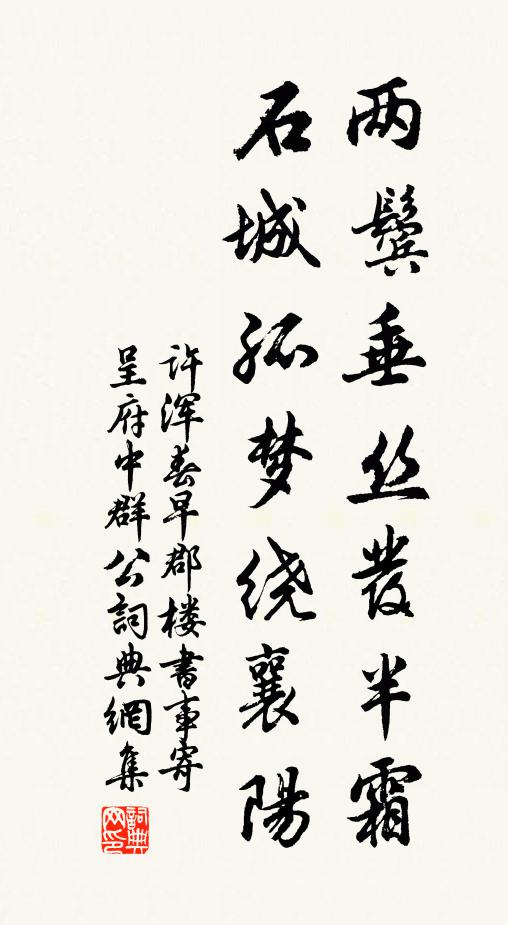 两鬓垂丝发半霜
石城孤梦绕襄陽
许浑春早郡楼書事寄
呈府中群公詞典網集
詞典网印